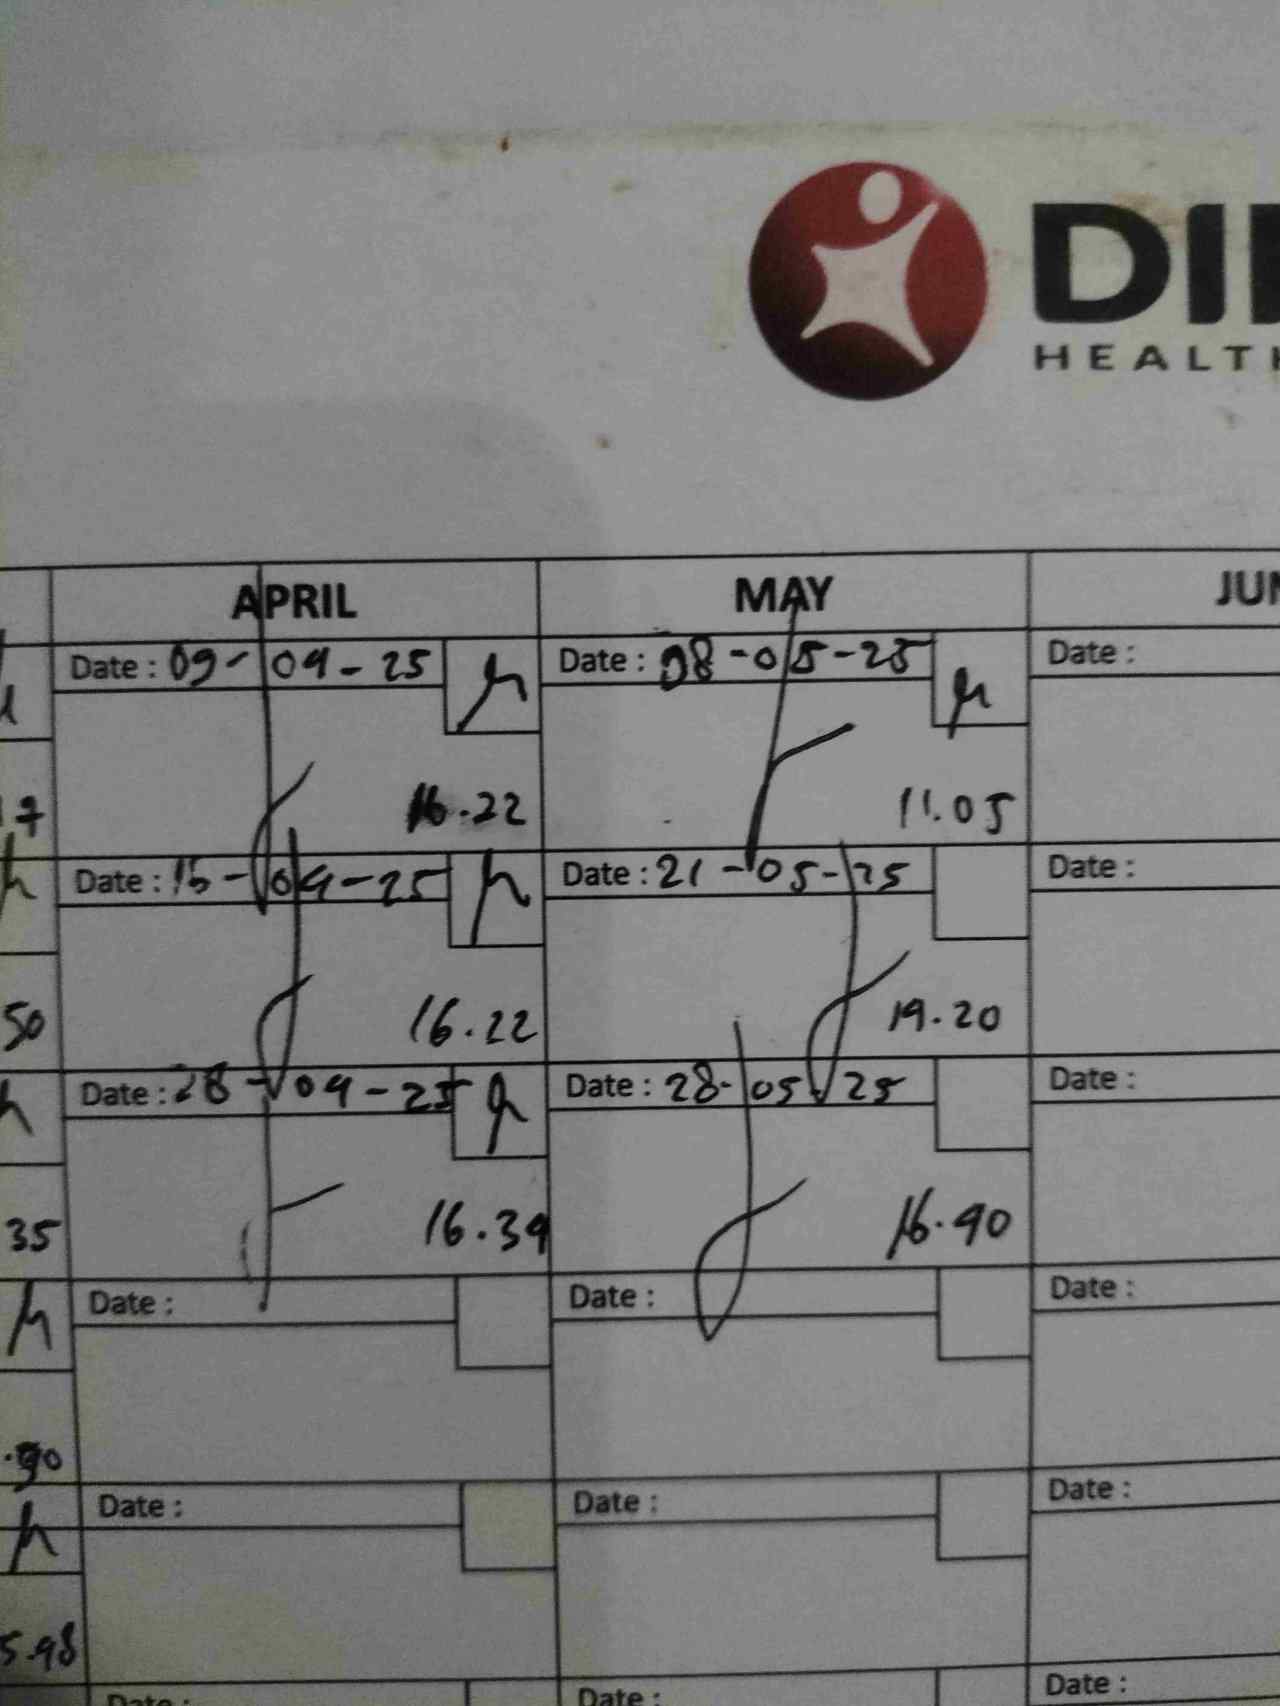 DI
HEALTH
APRIL MAY JUN
Date : 09-04-25 Date : 08-05-25 Date :
16.22 11.05
Date : 15-04-25 Date : 21-05-25 Date :
50 16.22 19.20
Date : 28-04-25 Date : 28-05-25 Date :
35 16.34 16.40
Date : Date : Date :
.90
Date : Date : Date :
5.48
Date : Date : Date :